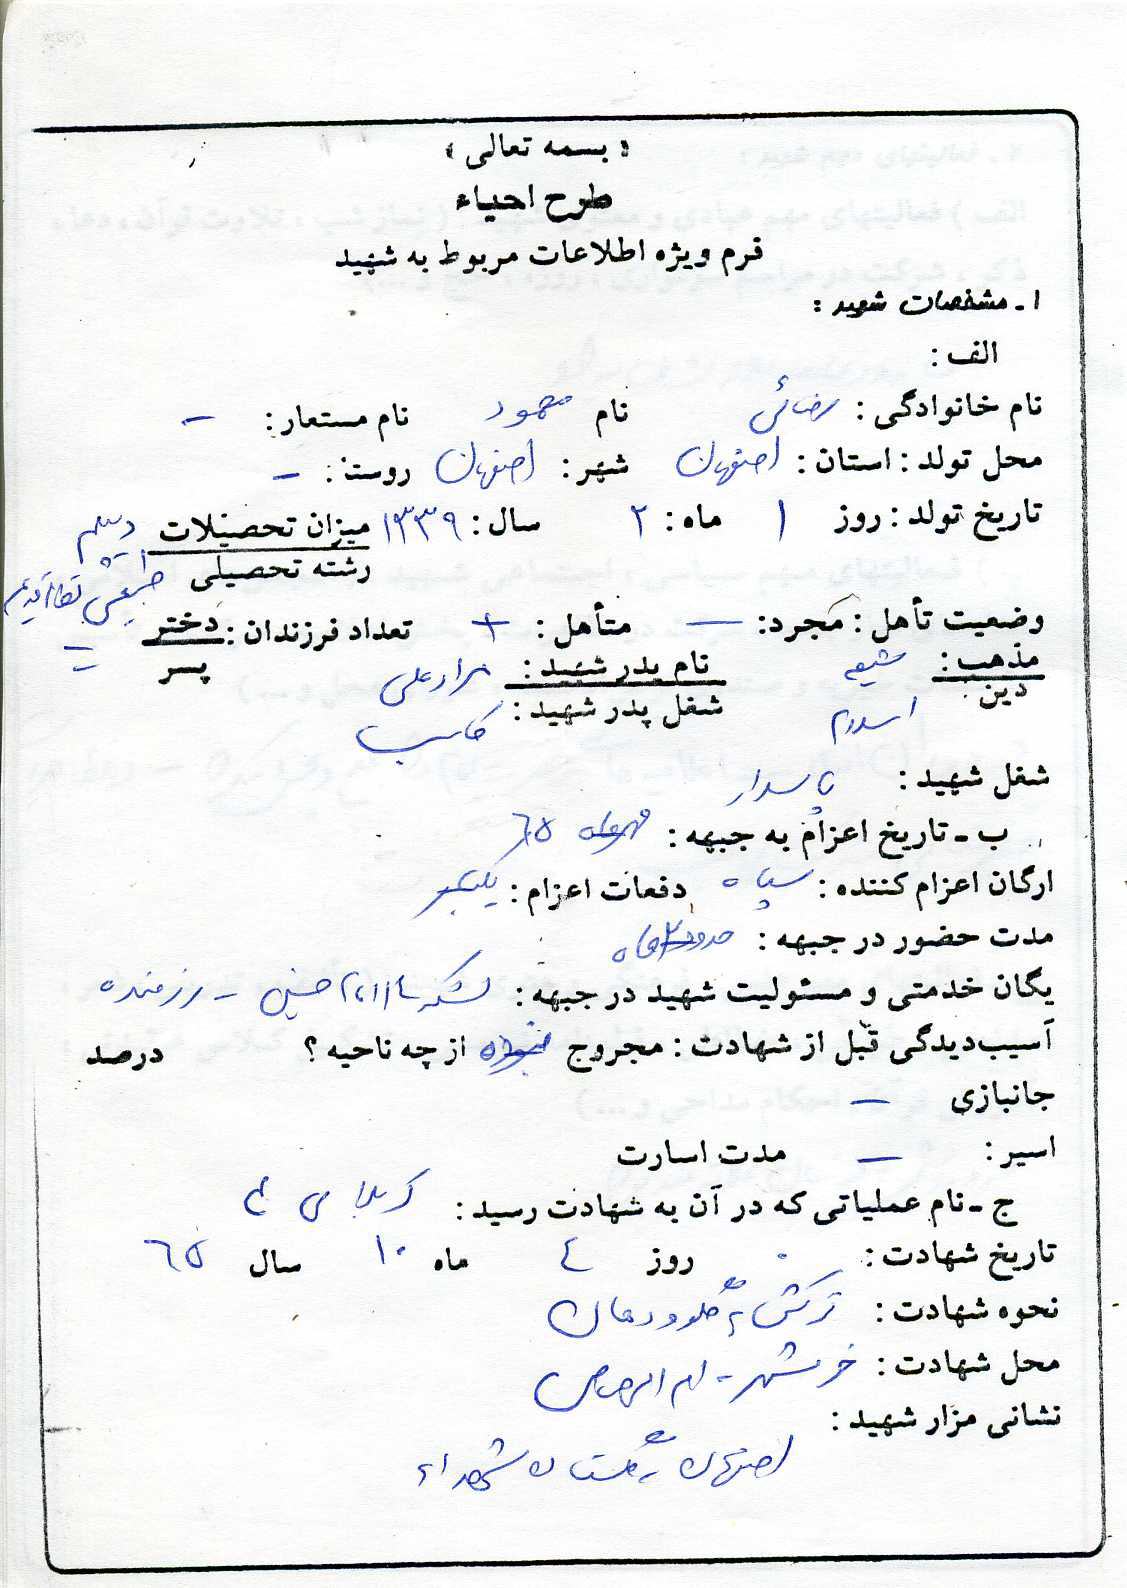 « بسمه تعالی »
طرح احیاء
فرم ویژه اطلاعات مربوط به شهید
۱ـ مشخصات شهید :
الف :
نام خانوادگی : رضائی نام محمود نام مستعار : –
محل تولد : استان : اصفهان شهر : اصفهان روستا : –
تاریخ تولد : روز ۱ ماه : ۲ سال : ۱۳۳۹ میزان تحصیلات دیپلم
رشته تحصیلی
وضعیت تأهل : مجرد : – متأهل : + تعداد فرزندان : دختر –
پسر –
مذهب : شیعه نام پدر شهید : مرادعلی
دین اسلام شغل پدر شهید : کاسب
شغل شهید : پاسدار
ب ـ تاریخ اعزام به جبهه : مهرماه ۶۵
ارگان اعزام کننده : سپاه دفعات اعزام : یکبار
مدت حضور در جبهه : حدود ۲ ماه
یگان خدمتی و مسئولیت شهید در جبهه : لشکر ۱۴ امام حسین – رزمنده
آسیب‌دیدگی قبل از شهادت : مجروح نبوده از چه ناحیه ؟ درصد
جانبازی –
اسیر : – مدت اسارت
ج ـ نام عملیاتی که در آن به شهادت رسید : کربلای ۴
تاریخ شهادت : روز ۴ ماه ۱۰ سال ۶۵
نحوه شهادت : ترکش به گلو و دهان
محل شهادت : خرمشهر – ام الرصاص
نشانی مزار شهید :
اصفهان – گلستان شهداء